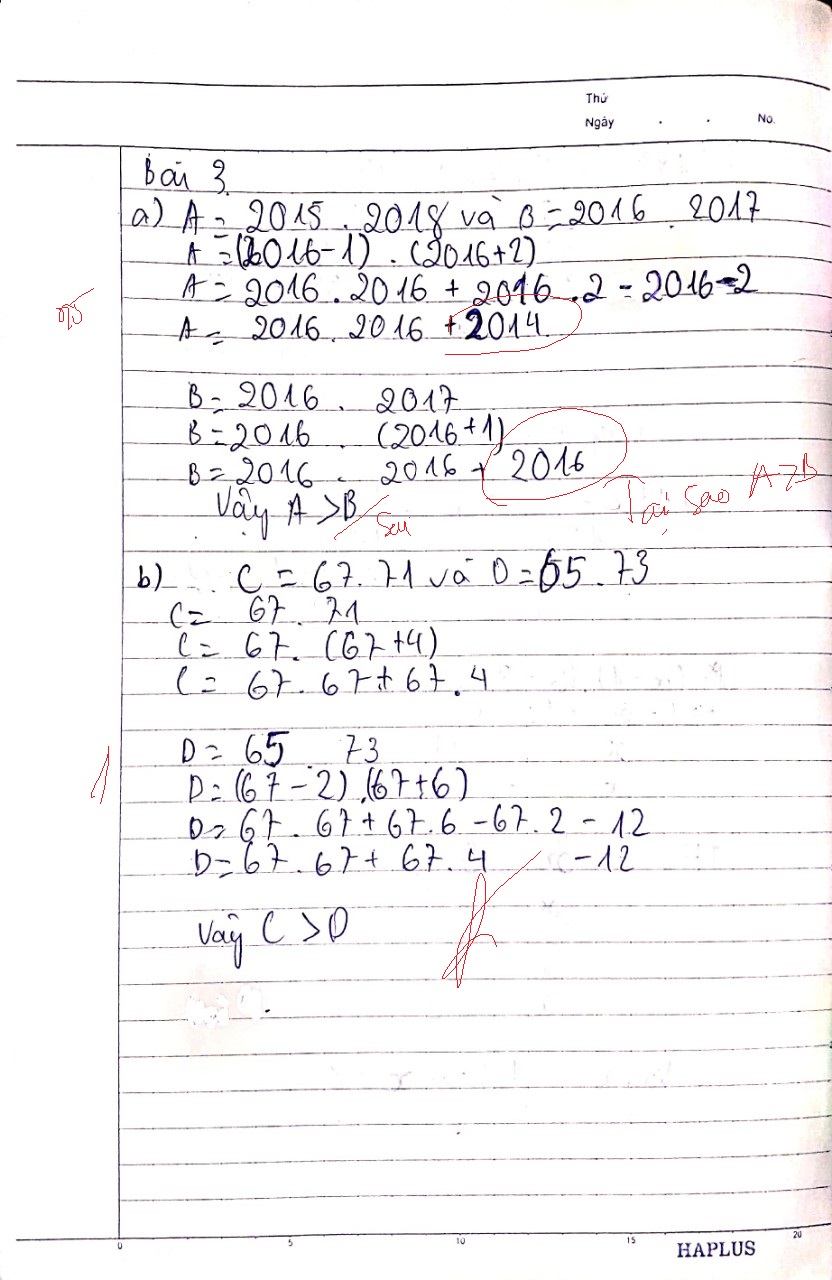 Thứ
Ngày . . No.
Bài 3
a) A = 2015 . 2018 và B = 2016 . 2017
A = (2016-1) . (2016+2)
A = 2016 . 2016 + 2016 . 2 - 2016-2
A = 2016 . 2016 + 2014
B = 2016 . 2017
B = 2016 . (2016+1)
B = 2016 . 2016 + 2016
Tại sao A>B
Vậy A >B
b) C = 67.71 và D = 65.73
C = 67 . 71
C = 67. (67+4)
C = 67 . 67 + 67 . 4
D = 65 . 73
1
D = (67 - 2) . (67+6)
D = 67 . 67 + 67.6 -67.2 - 12
D = 67 . 67 + 67.4 -12
Vậy C > D
0 5 10 15 20
HAPLUS